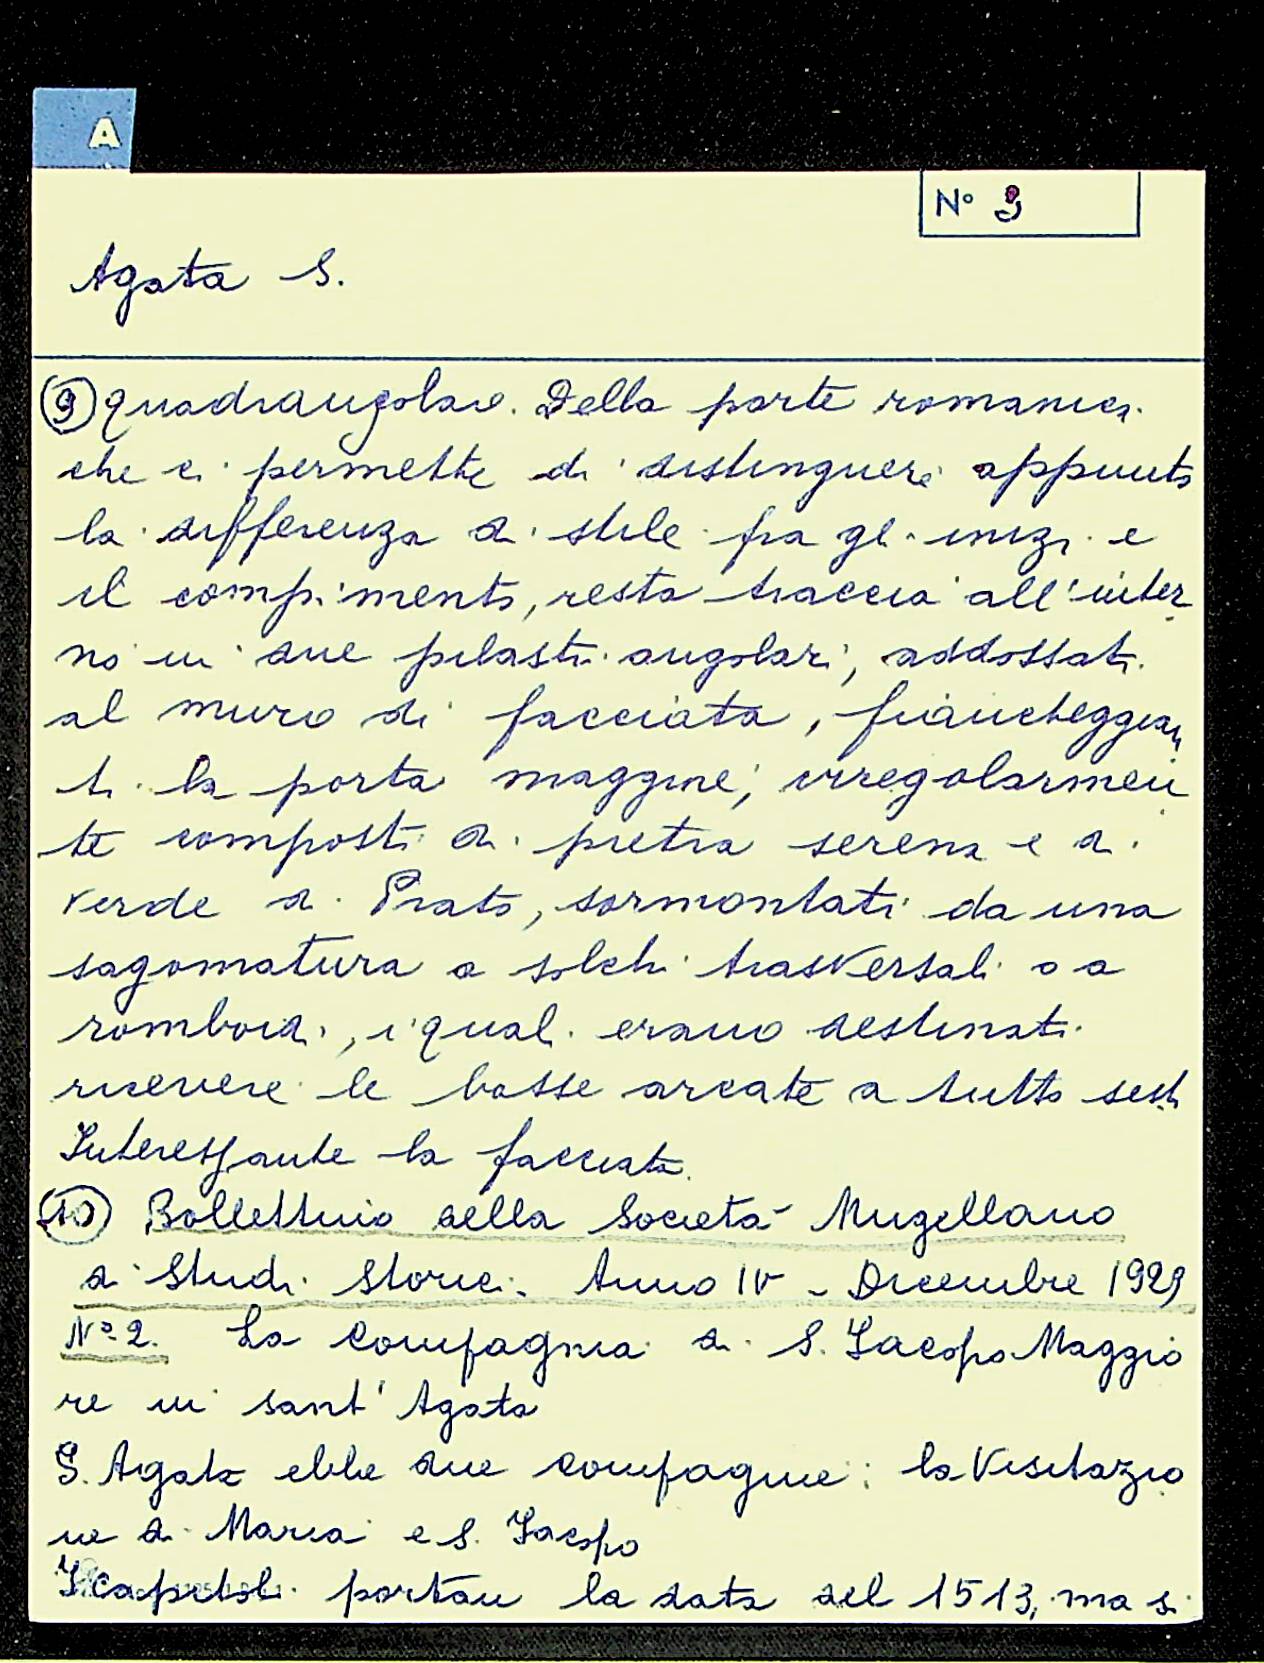 A
N° 9
Agata S.
(9) quadrangolare. Della parte romanica
che ci permette di distinguere appunto
la differenza di stile fra gli inizi e
il compimento, resta traccia all'inter
no in due pilastri angolari, addossati
al muro di facciata, fiancheggian
ti la porta maggiore, irregolarmen
te composti di pietra serena e di
verde di Prato, sormontati da una
sagomatura a solchi trasversali o a
romboidi, i quali erano destinati
ricevere le basse arcate a tutto sesto
Interessante la facciata.
(10) Bollettino della Società Mugellano
di Studi Storici. Anno IV - Dicembre 1929
N° 2. La Compagnia di S. Jacopo Maggio
re in sant'Agata
S. Agata ebbe due compagnie: la Visitazio
ne di Maria e S. Jacopo
I capitoli portan la data del 1513, ma si